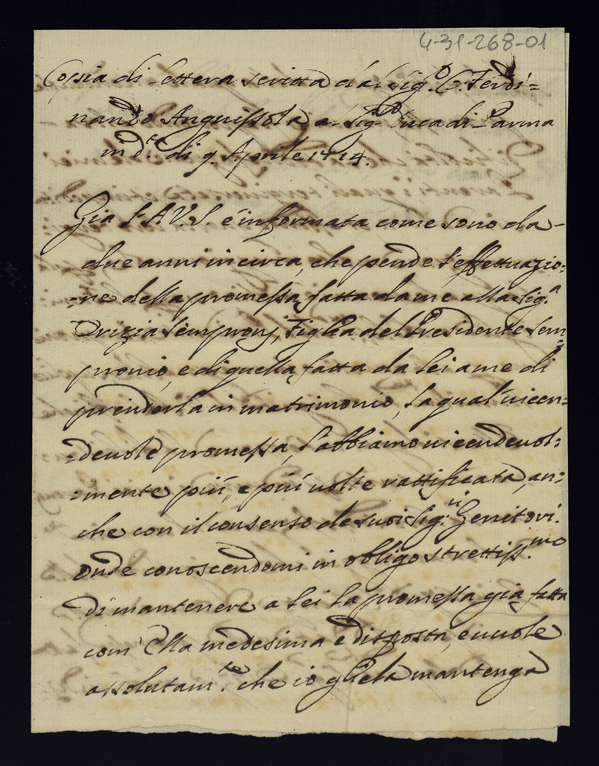 4-31-268-01
Copia di lettera scritta dal Sig.r C. Ferdi-
nando Anguissola al Sig.r Duca di Parma
in d.ta di 9 Aprile 1714.
Già l'A.V.S. è informata come sono da-
due anni in circa, che pende l'effettuazio-
=ne della promessa fatta da me alla Sig.a
Orizia Sempronj, figlia del Presidente Sem-
pronio, e di quella fatta da lei a me di
prenderla in matrimonio, la qual vicen-
=devole promessa, l'abbiamo vicendevol=
=mente più, e più volte rattificata, an-
che con il consenso de suoi Sig.ri Genitori.
Onde conoscendomi in obligo strettiss.mo
di mantenere a lei la promessa già fatta
com' Ella medesima è disposta, e vuole
assolutam.te che io gliela mantenga